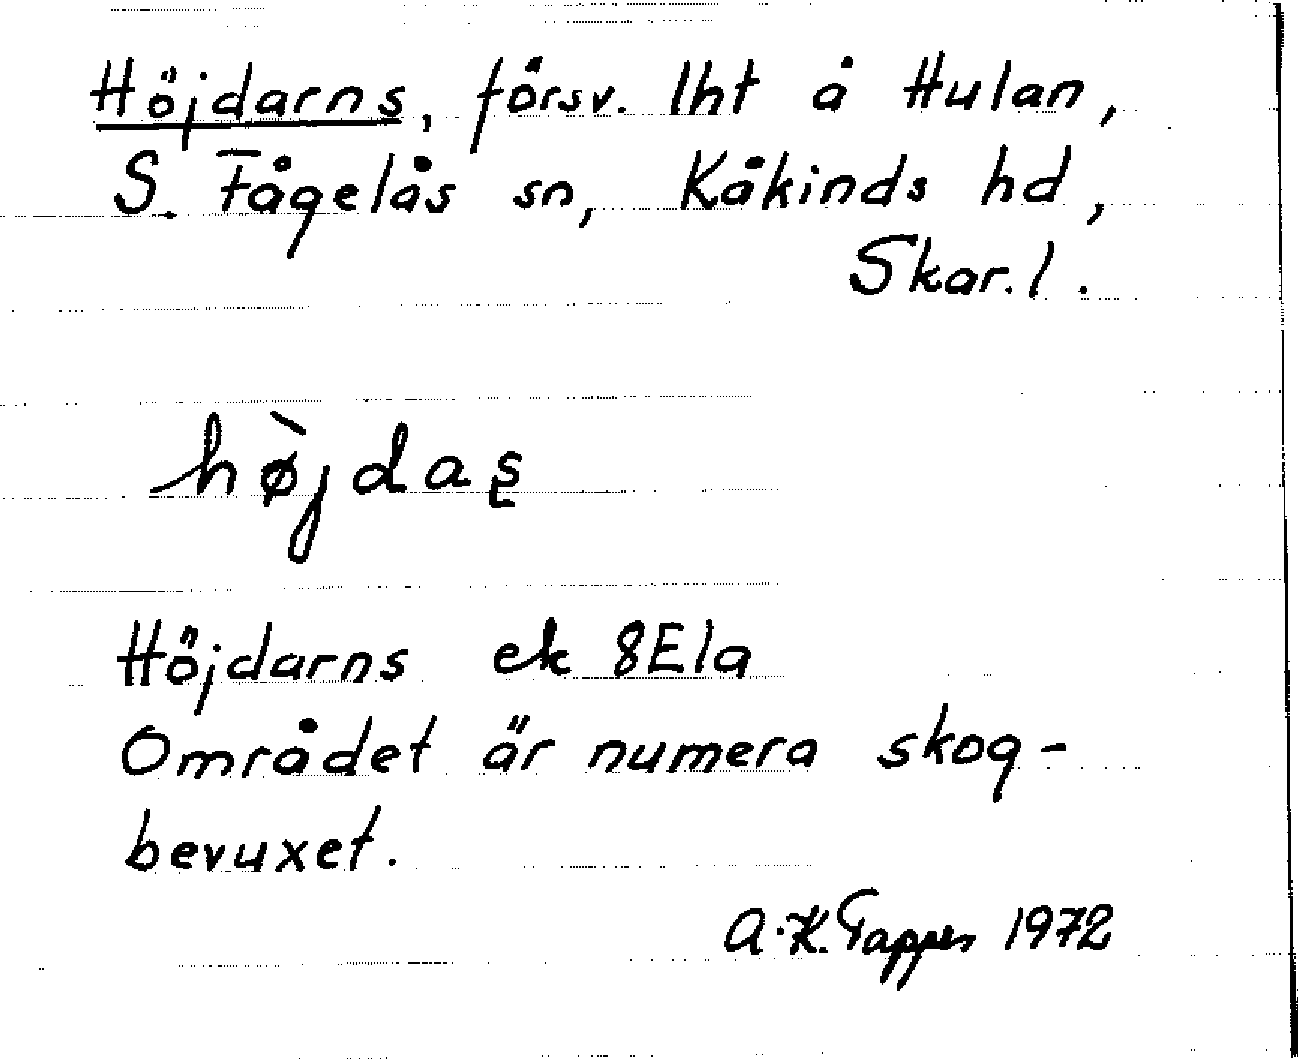 Höjdarns, försv. lht å Hulan,
S. Fågelås sn, Kåkinds hd,
Skar. l.
hø̀jdaș
Höjdarns ek 8E1a
Området är numera skog-
bevuxet.
A.K. 1972